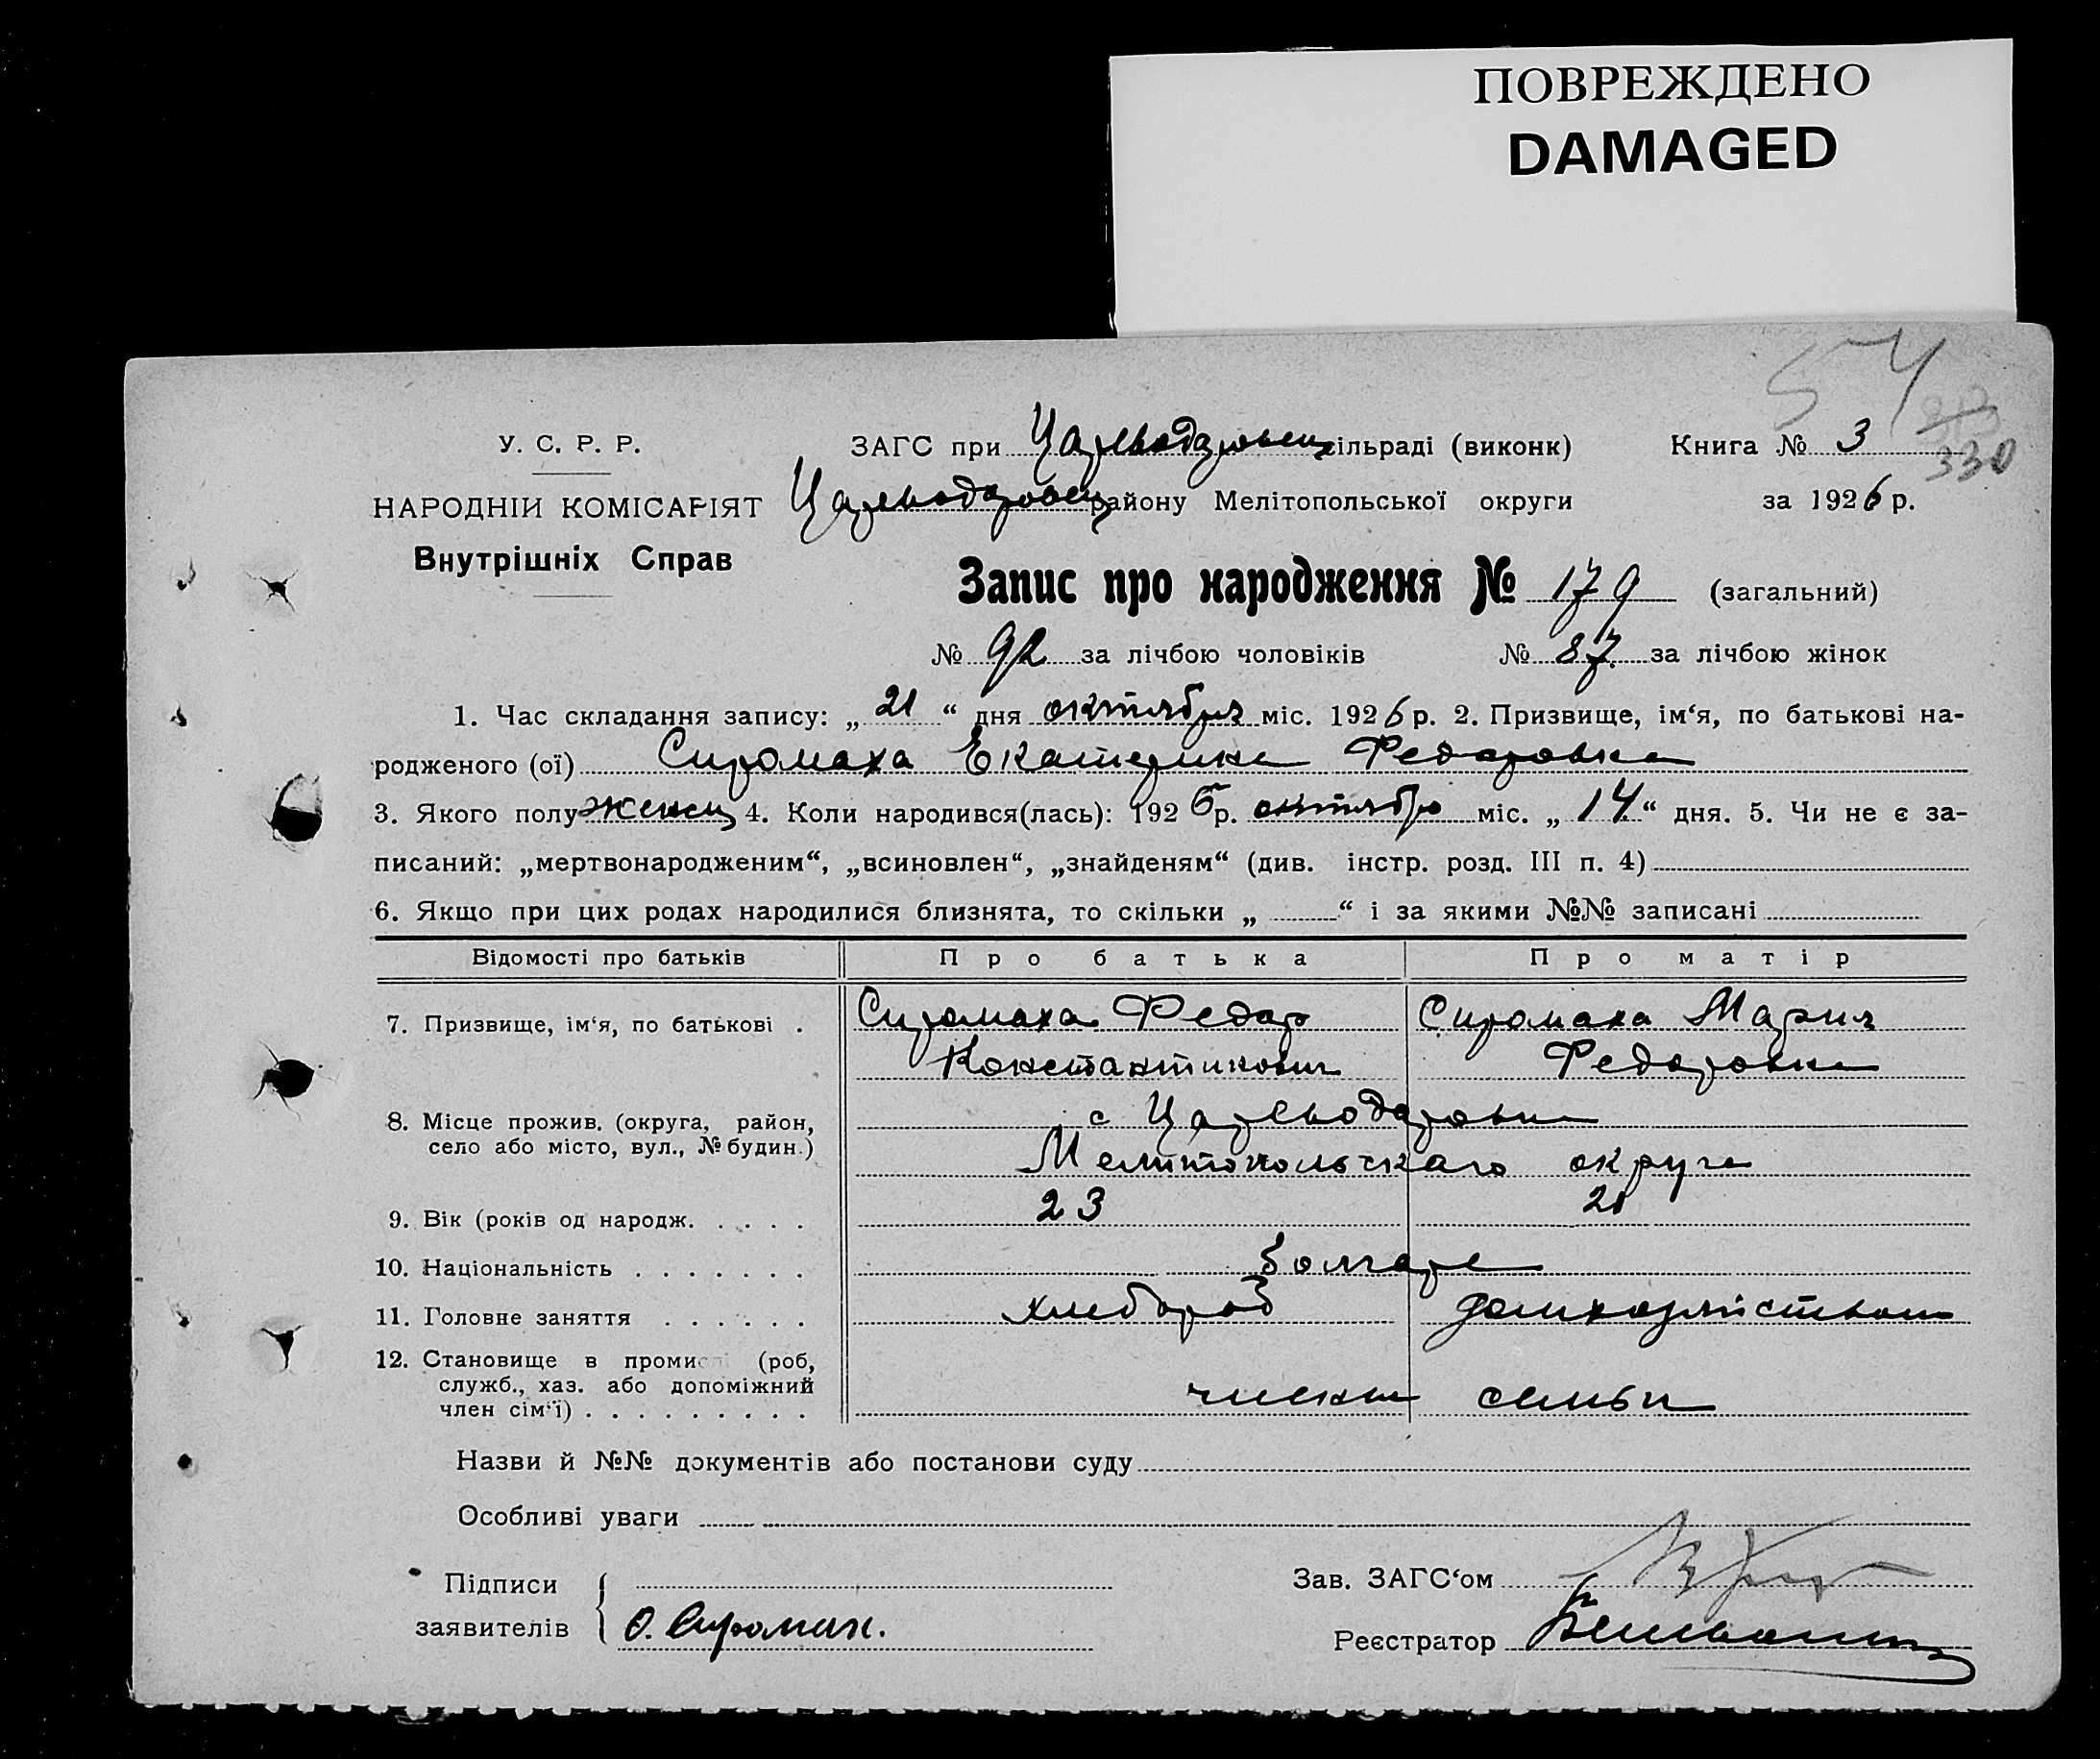 ПОВРЕЖДЕНО
DAMAGED
54
330
У. С. Р. Р.
ЗАГС при Царевода́ровск сільраді (виконк)
Книга № 3
НАРОДНІЙ КОМІСАРІЯТ
Цареводаровск району Мелітопольської округи
за 1926 р.
Внутрішніх Справ
Запис про народження № 179 (загальний)
№ 92 за лічбою чоловіків № 87 за лічбою жінок
1. Час складання запису: „ 21 “ дня октября міс. 1926 р. 2. Призвище, ім‘я, по батькові на-
родженого (ої) Сиромаха Екатерина Федоровна
3. Якого полу женск 4. Коли народився(лась): 1926 р. октябр міс. „ 14 “ дня. 5. Чи не є за-
писаний: „мертвонародженим“, „всиновлен“, „знайденям“ (див. інстр. розд. III п. 4)
6. Якщо при цих родах народилися близнята, то скільки „ “ і за якими №№ записані
Відомості про батьків Про батька Про матір
7. Призвище, ім‘я, по батькові . Сиромаха Федор Сиромаха Мария
Константинович Федоровна
8. Місце прожив. (округа, район, с Цареводаровка
село або місто, вул., № будин.) Мелитопольскаго округа
9. Вік (років од народж. . . . . 23 21
10. Національність . . . . . . . болгаре
11. Головне заняття . . . . . . хлебороб домхозяйством
12. Становище в промис (роб,
служб., хаз. або допоміжний
член сім‘ї) . . . . . . . . . члены семьи
Назви й №№ документів або постанови суду
Особливі уваги
Підписи
Зав. ЗАГС‘ом
заявителів Сиромах.
Реєстратор